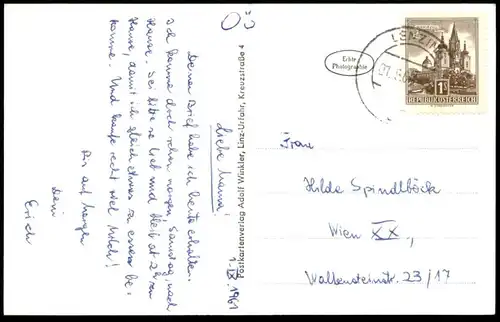 Ö3
1. IX. 1961
Liebe Mami!
Deinen Brief habe ich heute erhalten.
Ich komme doch schon morgen Samstag, nach
Hause. Sei bitte so lieb und bleib ab 2h zu
Hause, damit ich gleich etwas zu essen be-
komme. Und kaufe recht viel Milch!
Bis auf morgen
Dein
Erich
Postkartenverlag Adolf Winkler, Linz-Urfahr, Kreuzstraße 4
Echte
Photographie
LENZING
REPUBLIK ÖSTERREICH
1S
Frau
Hilde Spindlböck
Wien XX,
Wallensteinstr. 23/17